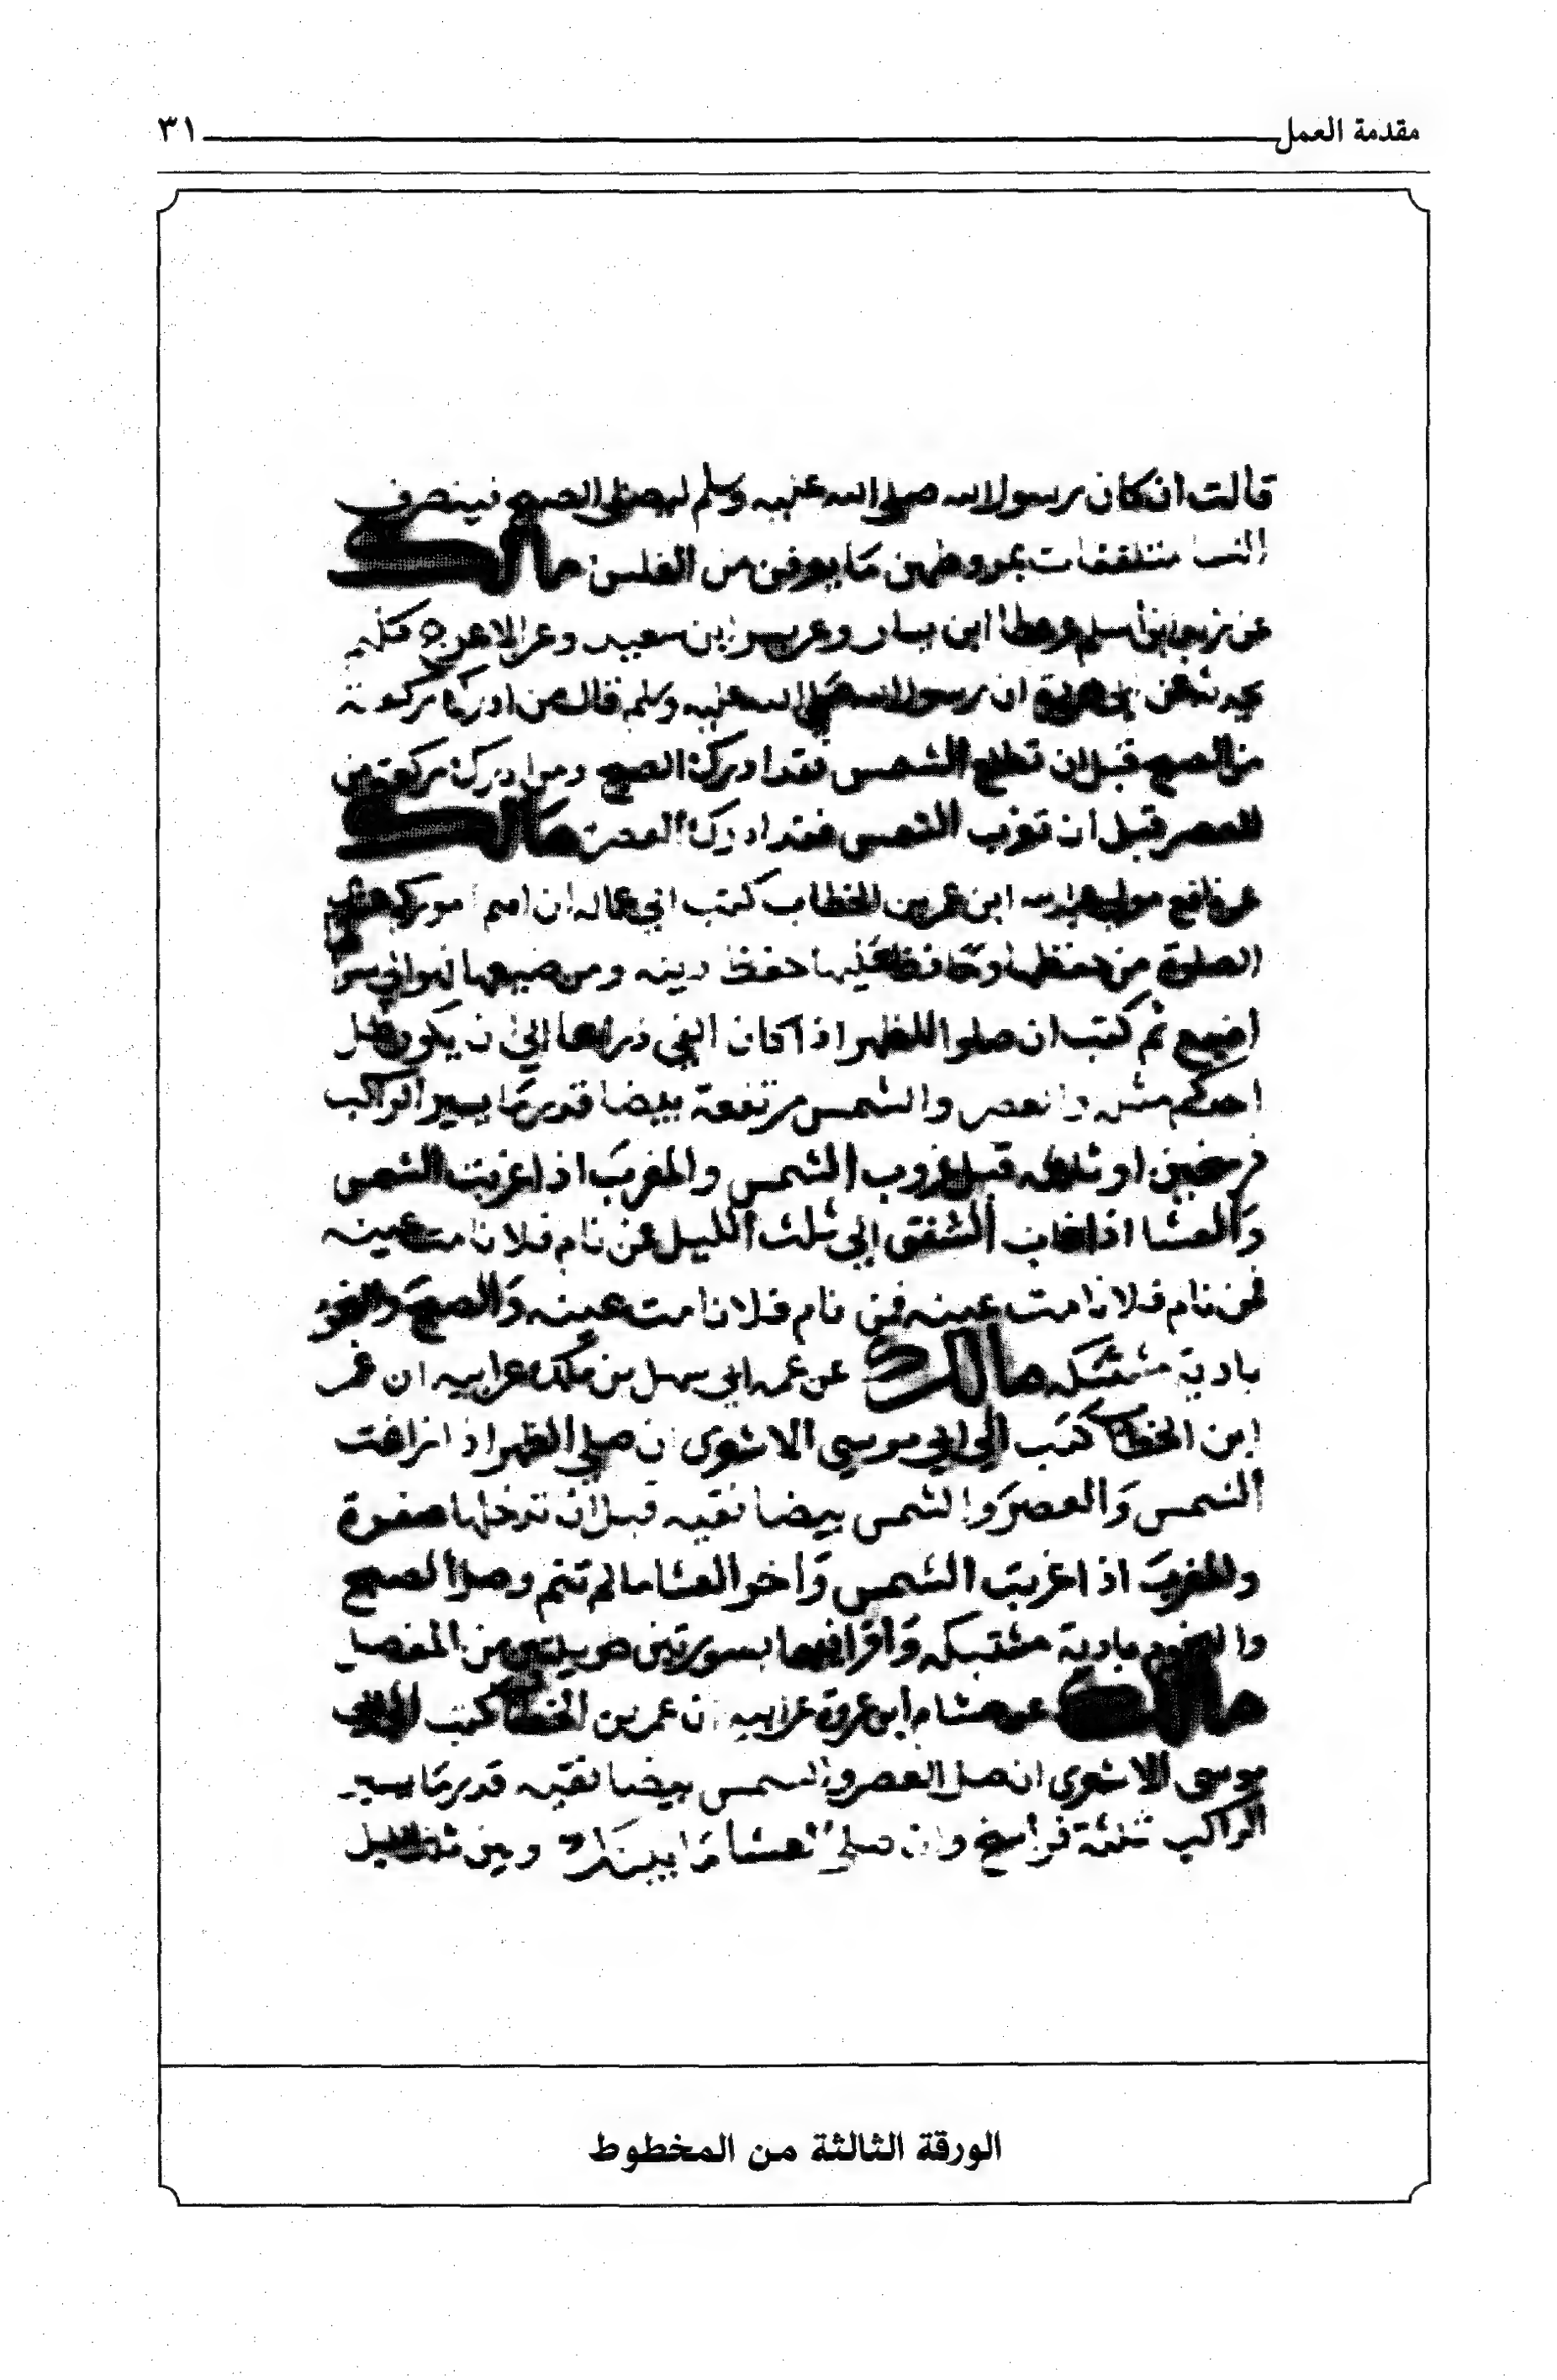 مقدمة العمل ٣١
قالت ان كان رسول الله صلى الله عليه وسلم ليصلي الصبح فينصرف
النسا متلففات بمروطهن ما يعرفن من الغلس مالك
عن زيد ابن اسلم وعطا ابن يسار وعن بسر ابن سعيد وعن الاعرج كلهم
يحدثه عن ابي هريرة ان رسول الله صلى الله عليه وسلم قال من ادرك ركعة
من الصبح قبل ان تطلع الشمس فقد ادرك الصبح ومن ادرك ركعة من
العصر قبل ان تغرب الشمس فقد ادرك العصر مالك
عن نافع مولى عبد الله ابن عمر بن الخطاب كتب الي عماله ان اهم اموركم عندي
الصلوة من حفظها وحافظ عليها حفظ دينه ومن ضيعها فهو لما سواها
اضيع ثم كتب ان صلوا الظهر اذا كان الفي ذراعا الي ان يكون ظل
احدكم مثله والعصر والشمس مرتفعة بيضا قدر ما يسير الراكب
فرسخين او ثلثه قبل غروب الشمس والمغرب اذا غربت الشمس
والعشا اذا غاب الشفق الي ثلث الليل فمن نام فلا نامت عينه
فمن نام فلا نامت عينه فمن نام فلا نامت عينه والصبح والنجوم
بادية مشتبكه مالك عن عمه ابي سهيل بن ملك عن ابيه ان عمر
ابن الخطاب كتب الي ابي موسي الاشعري ان صلي الظهر اذا زاغت
الشمس والعصر والشمس بيضا نقيه قبل ان تدخلها صفرة
والمغرب اذا غربت الشمس واخر العشا ما لم تنم وصل الصبح
والنجوم بادية مشتبكه واقرا فيها بسورتين طويلتين من المفصل
مالك عن هشام ابن عروة عن ابيه ان عمر بن الخطاب كتب الي ابي
موسي الاشعري ان صل العصر والشمس بيضا نقيه قدر ما يسير
الراكب ثلثة فراسخ وان صلي العشا ما بينك وبين ثلث الليل
الورقة الثالثة من المخطوط